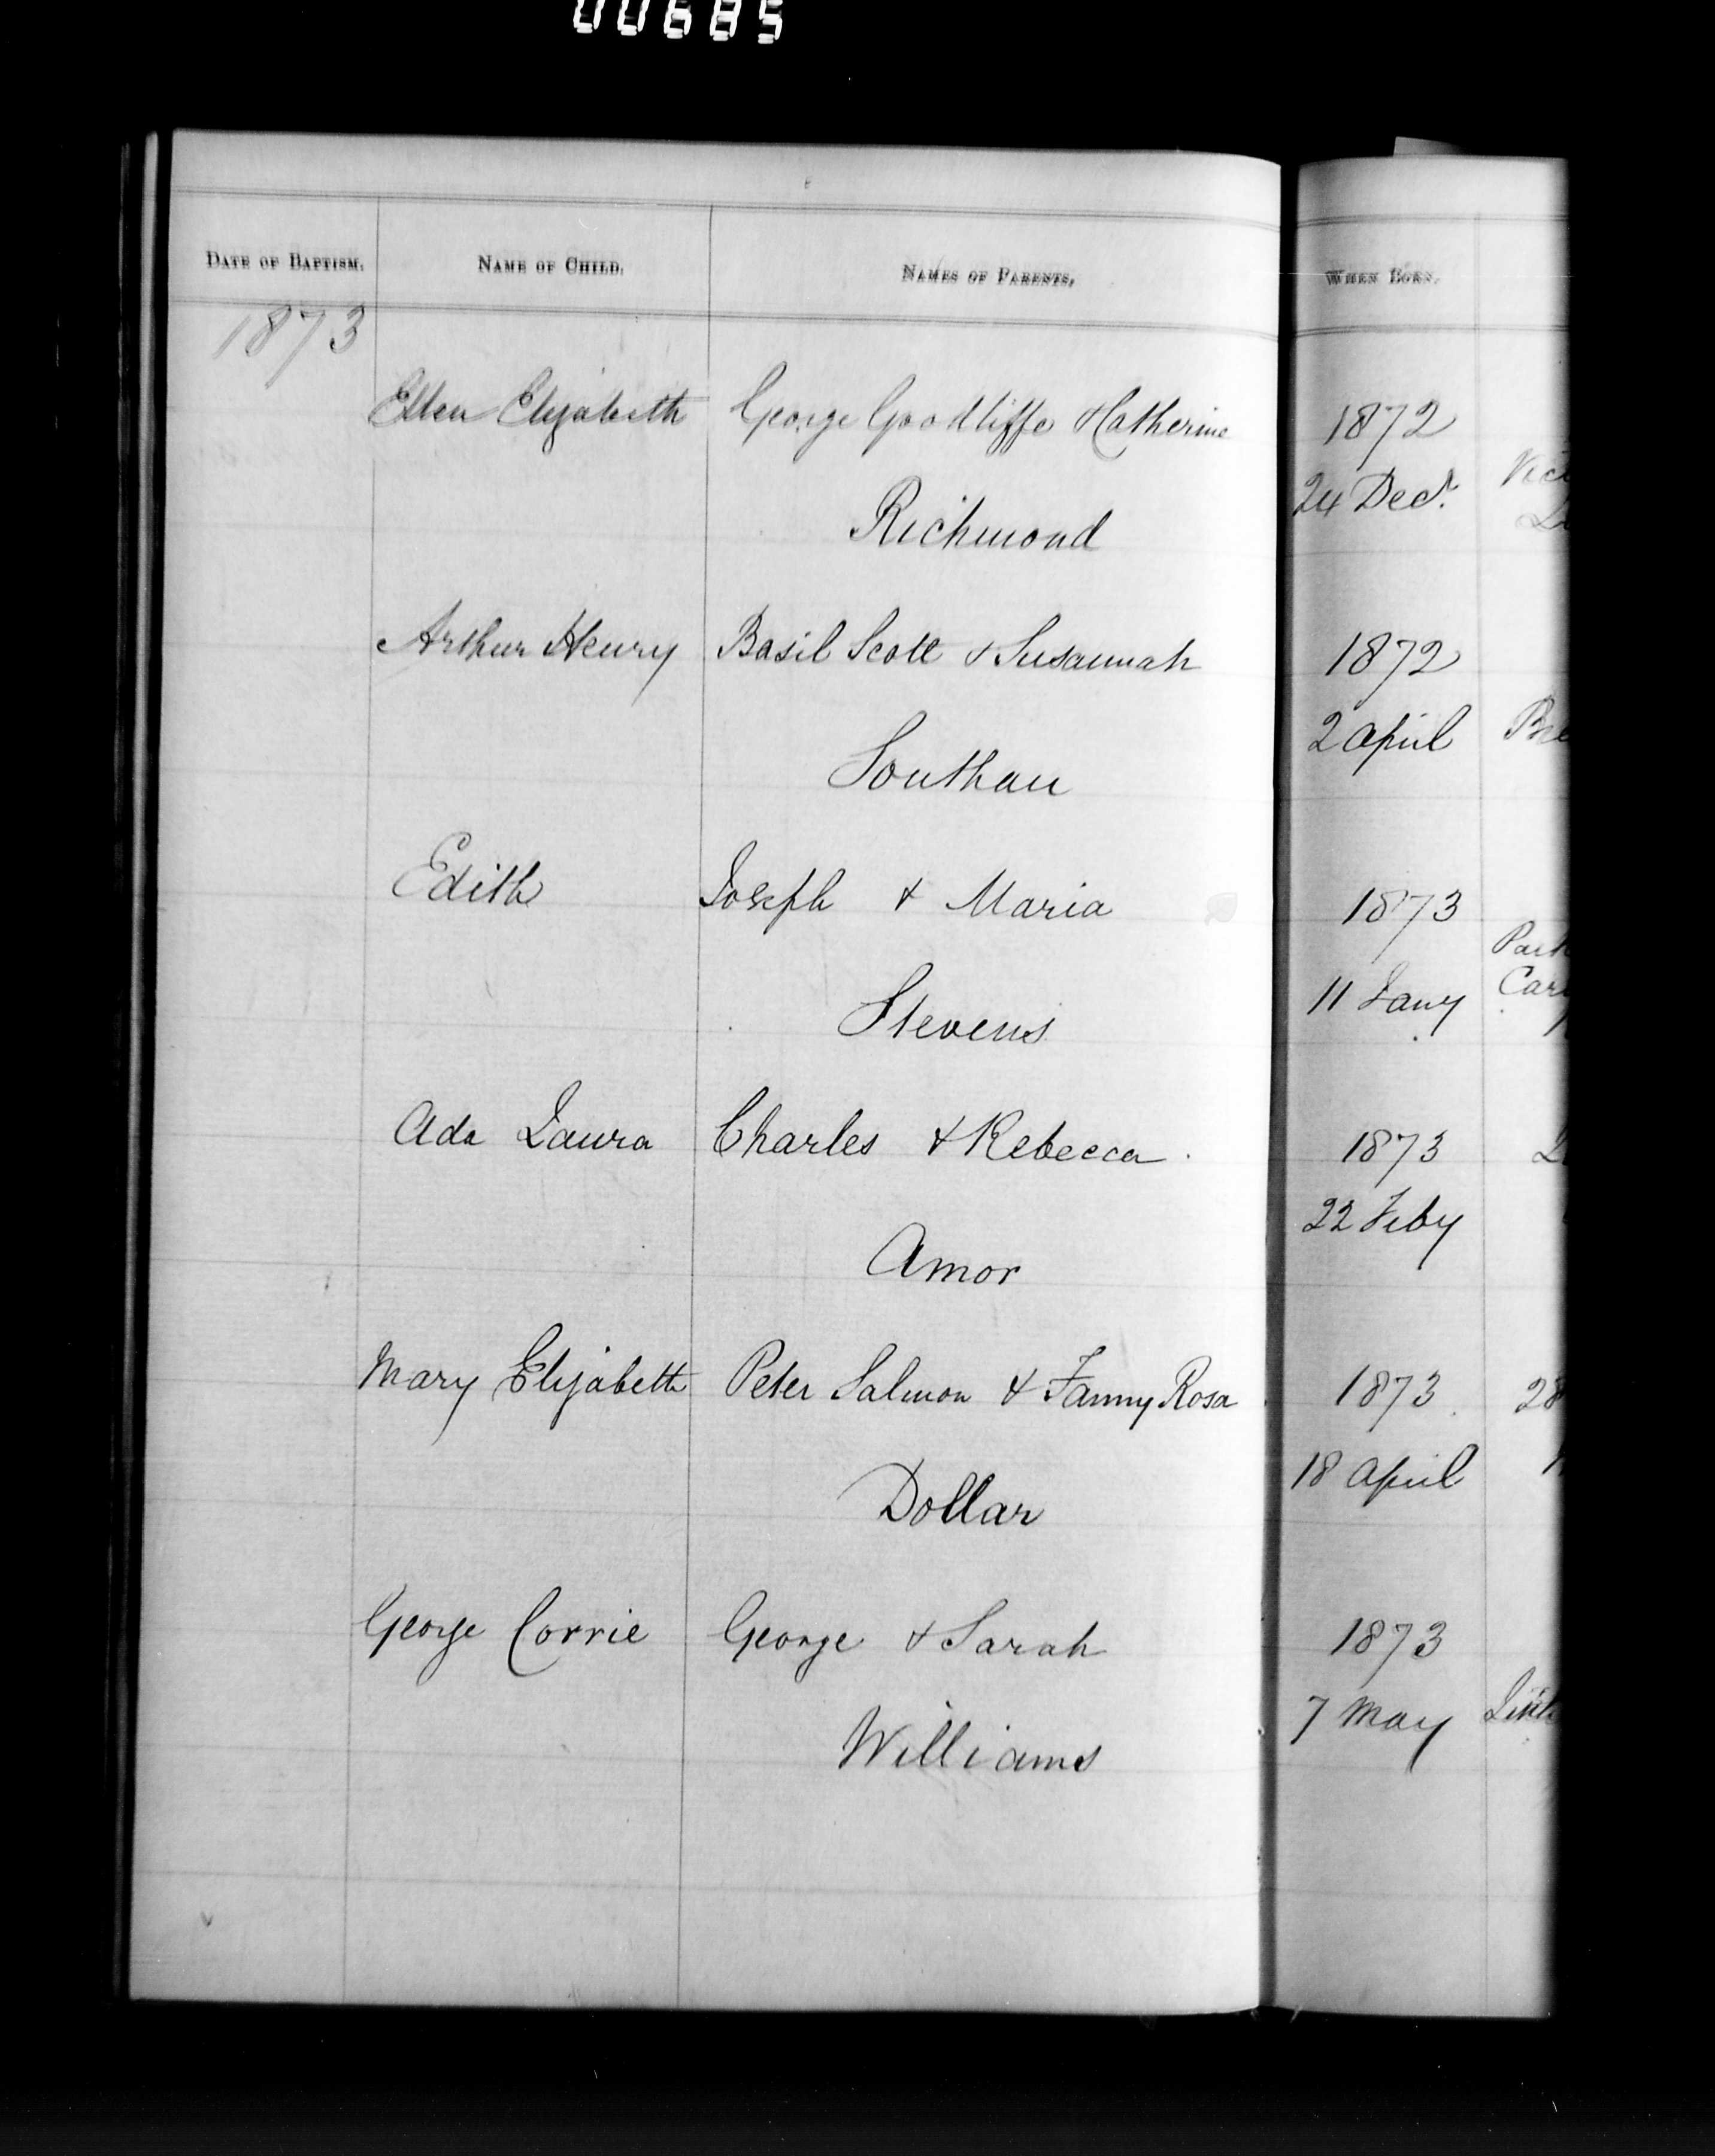 00685
DATE OF BAPTISM. NAME OF CHILD. NAMES OF PARENTS. WHEN BORN.
1873
Ellen Elizabeth George Goodliffe & Catherine 1872
Richmond 24 Decr.
Arthur Henry Basil Scott & Susannah 1872
Southan 2 April
Edith Joseph & Maria 1873
Stevens 11 Jany
Ada Laura Charles & Rebecca 1873
22 Feby
Amor
Mary Elizabeth Peter Salmon & Fanny Rosa 1873 28
Dollar 18 April
George Corrie George & Sarah 1873
Williams 7 May